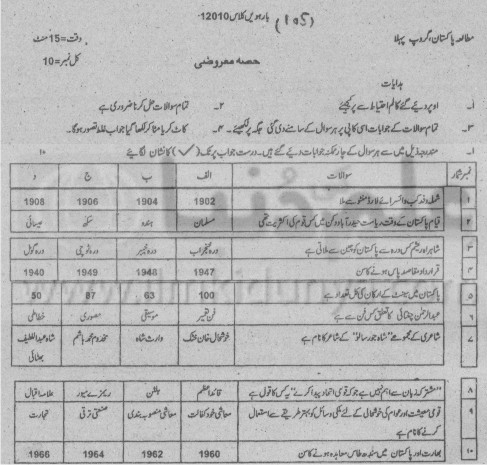 (105)
بارہویں کلاس 12010-
مطالعہ پاکستان، گروپ پہلا
وقت=15 منٹ
حصہ معروضی
کل نمبر=10
ہدایات
۱۔ اوپر دیئے گئے کالم احتیاط سے پر کیجئے ۲۔ تمام سوالات حل کرنا ضروری ہے
۳۔ تمام سوالات کے جوابات اسی کاپی پر ہر سوال کے سامنے دی گئی جگہ پر لکھیئے۔ ۴۔ کاٹ کر یا مٹا کر لکھا گیا جواب غلط تصور ہوگا۔
۱۔ مندرجہ ذیل میں سے ہر سوال کے چار ممکنہ جوابات دیئے گئے ہیں۔ درست جواب پر ٹک (✓) کا نشان لگائیے ۱۰
نمبر شمار سوالات الف ب ج د
۱ شملہ وفد کب وائسرائے لارڈ منٹو سے ملا 1902 1904 1906 1908
۲ قیام پاکستان کے وقت ریاست حیدرآباد دکن میں کس قوم کی اکثریت تھی مسلمان ہندو سکھ عیسائی
۳ شاہراہ ریشم کس درہ سے پاکستان کو چین سے ملاتی ہے درہ خنجراب درہ خیبر درہ ٹوچی درہ گومل
۴ قرارداد مقاصد پاس ہونے کا سن 1947 1948 1949 1940
۵ پاکستان میں سینٹ کے ارکان کی کل تعداد ہے 100 63 87 50
۶ عبدالرحمن چغتائی کا تعلق کس فن سے ہے فن تعمیر موسیقی مصوری خطاطی
۷ شاعری کے مجموعے "شاہ جو رسالو" کے شاعر کا نام ہے خوشحال خان خٹک وارث شاہ مخدوم محمد ہاشم شاہ عبداللطیف بھٹائی
۸ "مشترکہ زبان سے اہم نہیں ہے جو کہ قومی اتحاد پیدا کرے" یہ کس کا قول ہے قائداعظم ہٹلن ریمزے میور علامہ اقبال
۹ قومی معیشت اور عوام کی خوشحالی کے لئے ملکی وسائل کو بہتر طریقے سے استعمال کرنے کا نام ہے معاشی خود کفالت معاشی منصوبہ بندی صنعتی ترقی تجارت
۱۰ بھارت اور پاکستان میں سندھ طاس معاہدہ ہونے کا سن 1960 1962 1964 1966